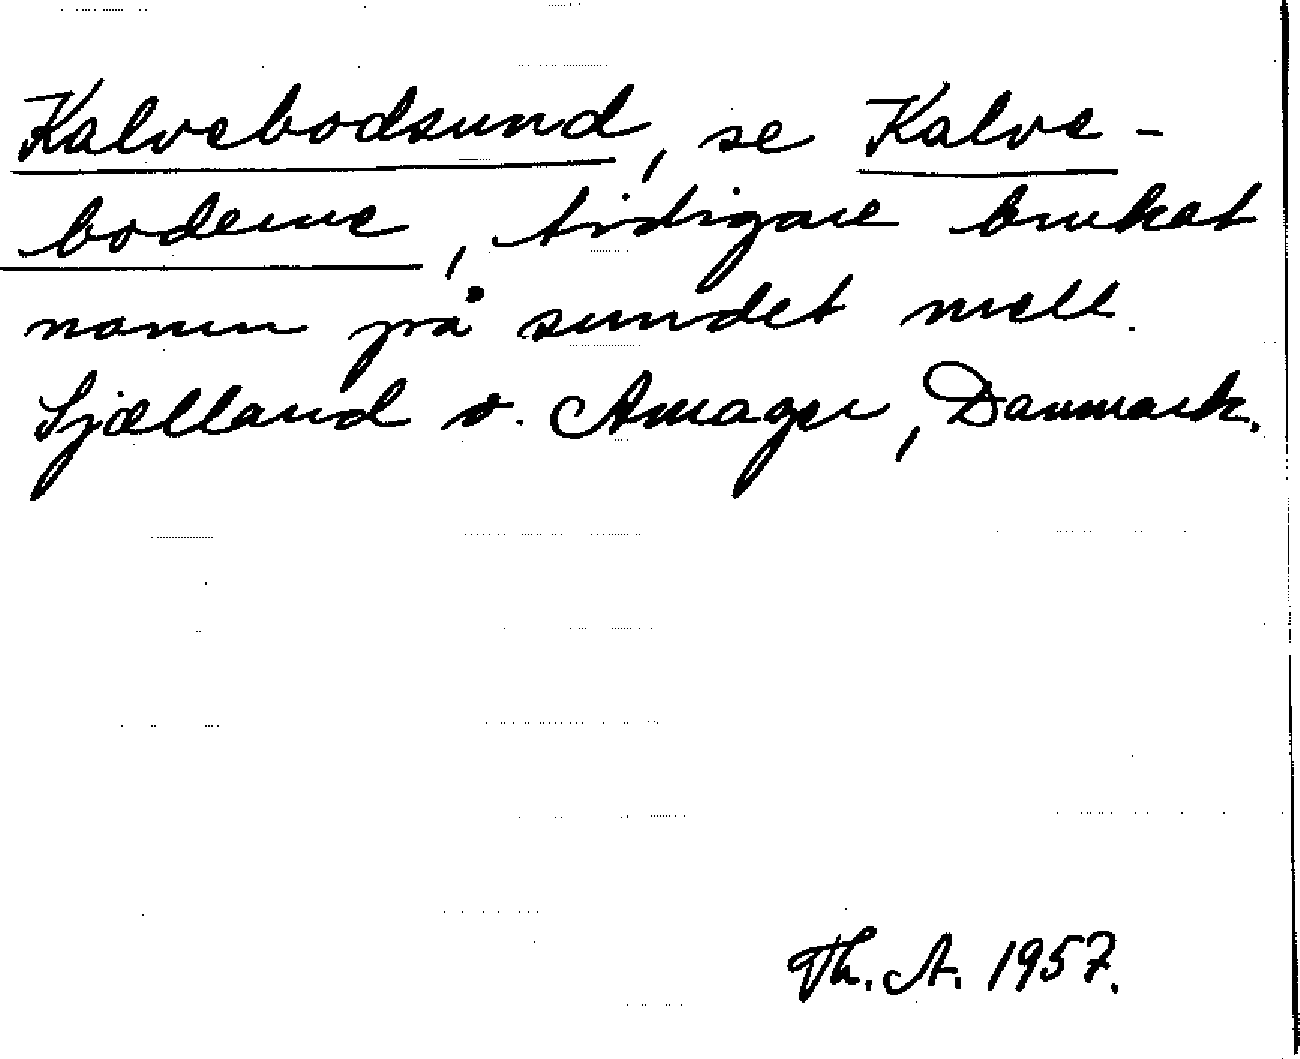 Kalvebodsund, se Kalve-
boderne, tidigare brukat
namn på sundet mell.
Sjælland o. Amager, Danmark.
Th. A. 1957.